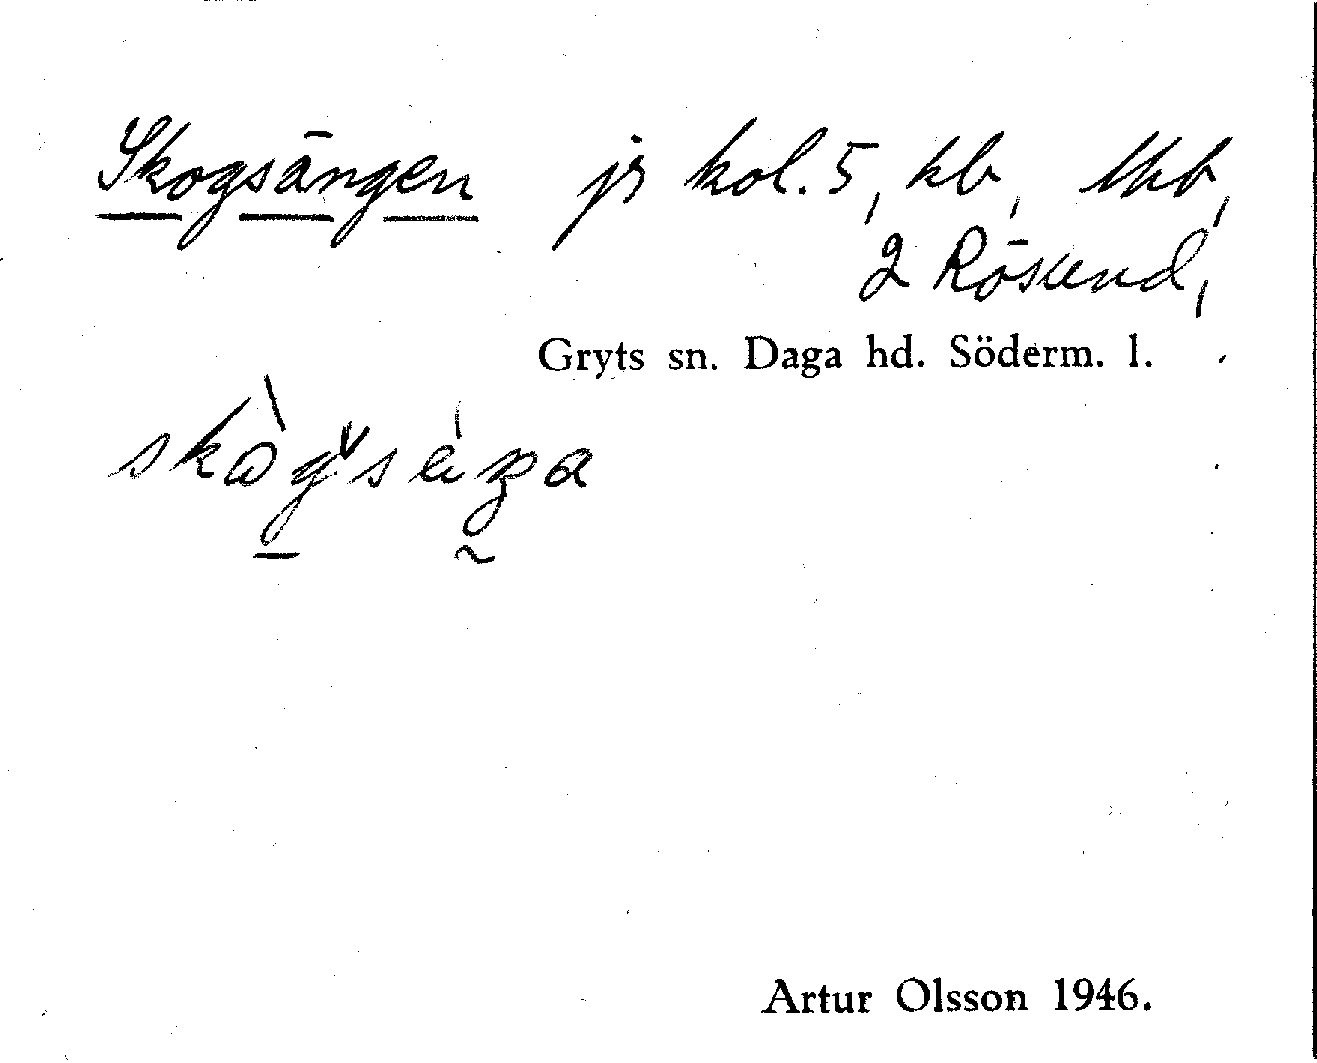 Skogsängen jr kol. 5, kb, lkb,
2 Rösund,
Gryts sn. Daga hd. Söderm. l.
Artur Olsson 1946.